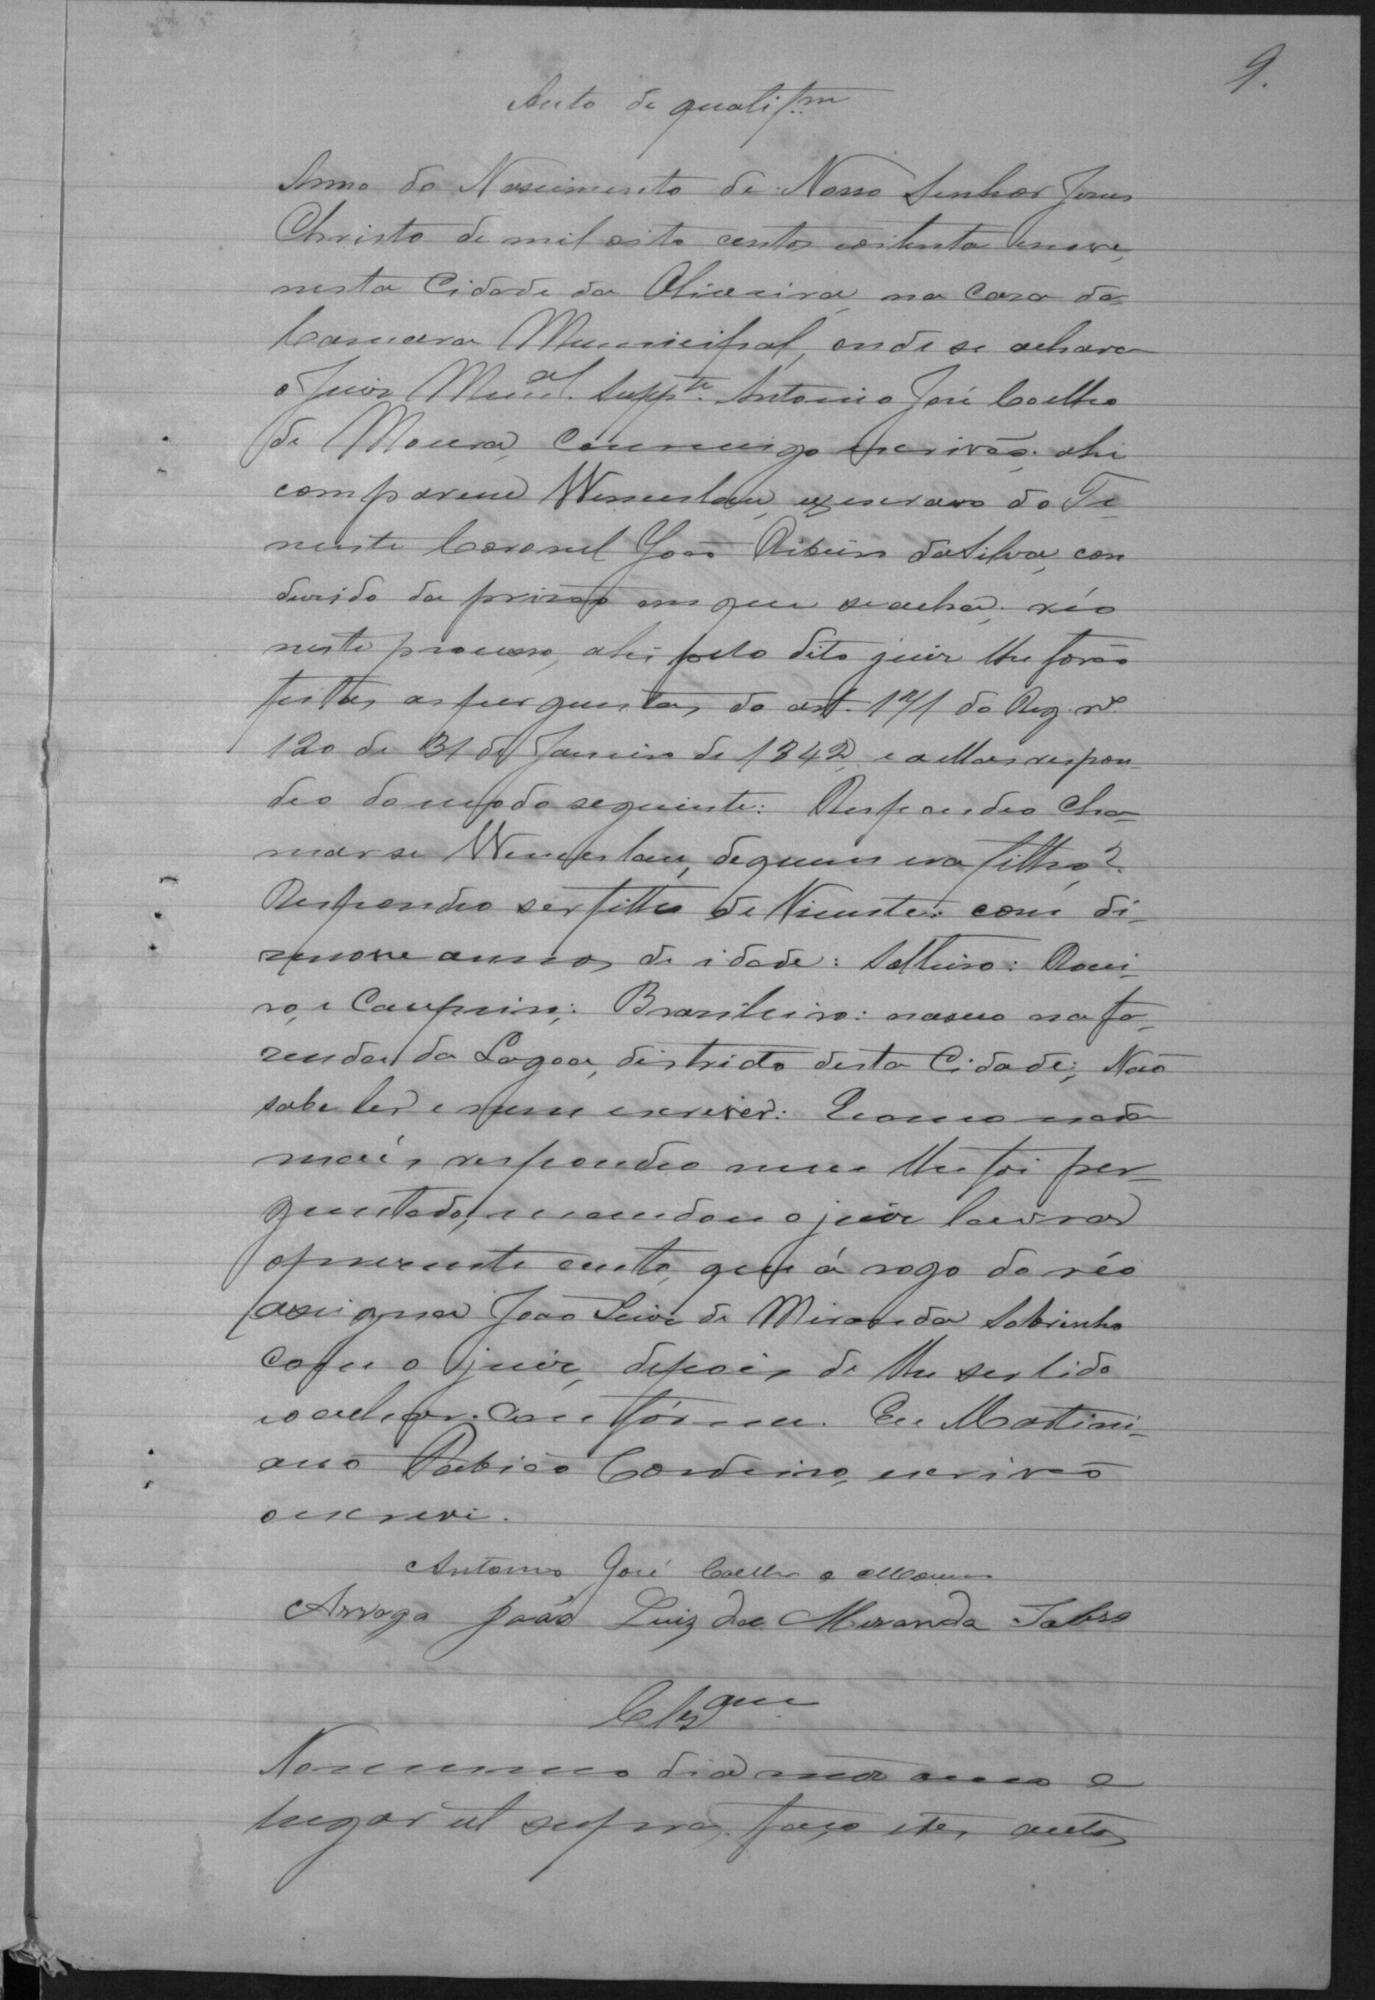 9.
Auto de qualif.m
Anno do Nascimento de Nosso Senhor Jesus
Christo de mil oito centos e oitenta e nove,
nesta Cidade da Oliveira, na Casa da
Camara Municipal, onde se achava
o Juiz Mun.al Supp.te Antonio José Coelho
de Moura, commigo escrivão, ahi
compareceu Wenceslau, escravo do Te-
nente Coronel João Ribeiro da Silva, con
duzido da prizão em que se acha, réo
neste processo, ahi pelo dito juiz lhe forão
feitas as perguntas do art. 171 do Reg. nº
120 de 31 de Janeiro de 1842, e a ellas respon-
deo do modo seguinte: Respondeo cha-
mar se Wenceslau, de quem era filho?
Respondeo ser filho de Vicente: com de-
zenove annos de idade: Solteiro:
ro, e Campeiro: Brazileiro: nasceo na fa-
zenda da Lagoa, districto desta Cidade; Não
sabe ler e nem escrever: E como nada
mais respondeo nem lhe foi per-
guntado, mandou o juiz lavrar
o presente auto, que á rogo do réo
assigna João Luiz de Miranda Sobrinho
com o juiz, depois de lhe ser lido
e o achar confórme. Eu Martini-
ano Cordeiro, escrivão
o escrevi.
Antonio José Coelho e Moura
Arrogo João Luiz de Miranda Sobro
Clsam
No mesmo dia mez anno e
lugar ut supra, faço estes autos